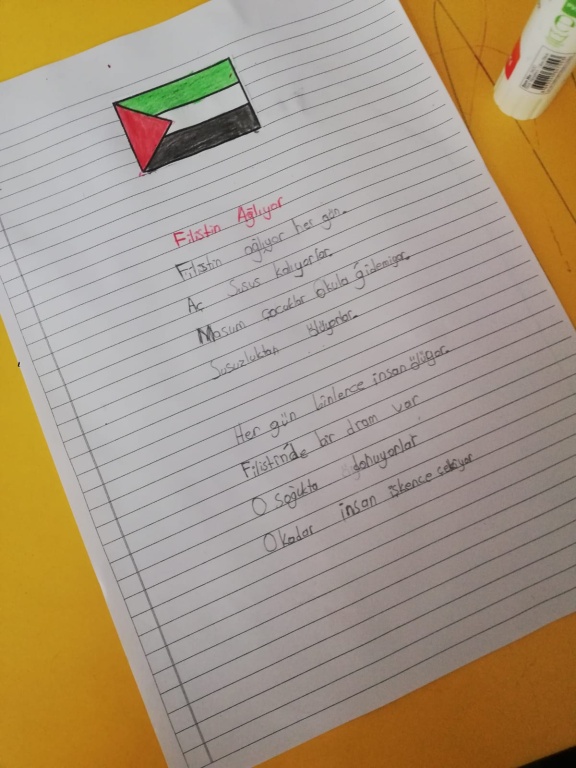 Filistin Ağlıyor
Filistin ağlıyor her gün.
Aç Susuz kalıyorlar.
Masum çocuklar Okula gidemiyor.
Susuzluktan ölüyorlar.

Her gün binlerce insan ölüyor.
Filistin'de bir dram var
O soğukta donuyorlar
O kadar insan işkence çekiyor